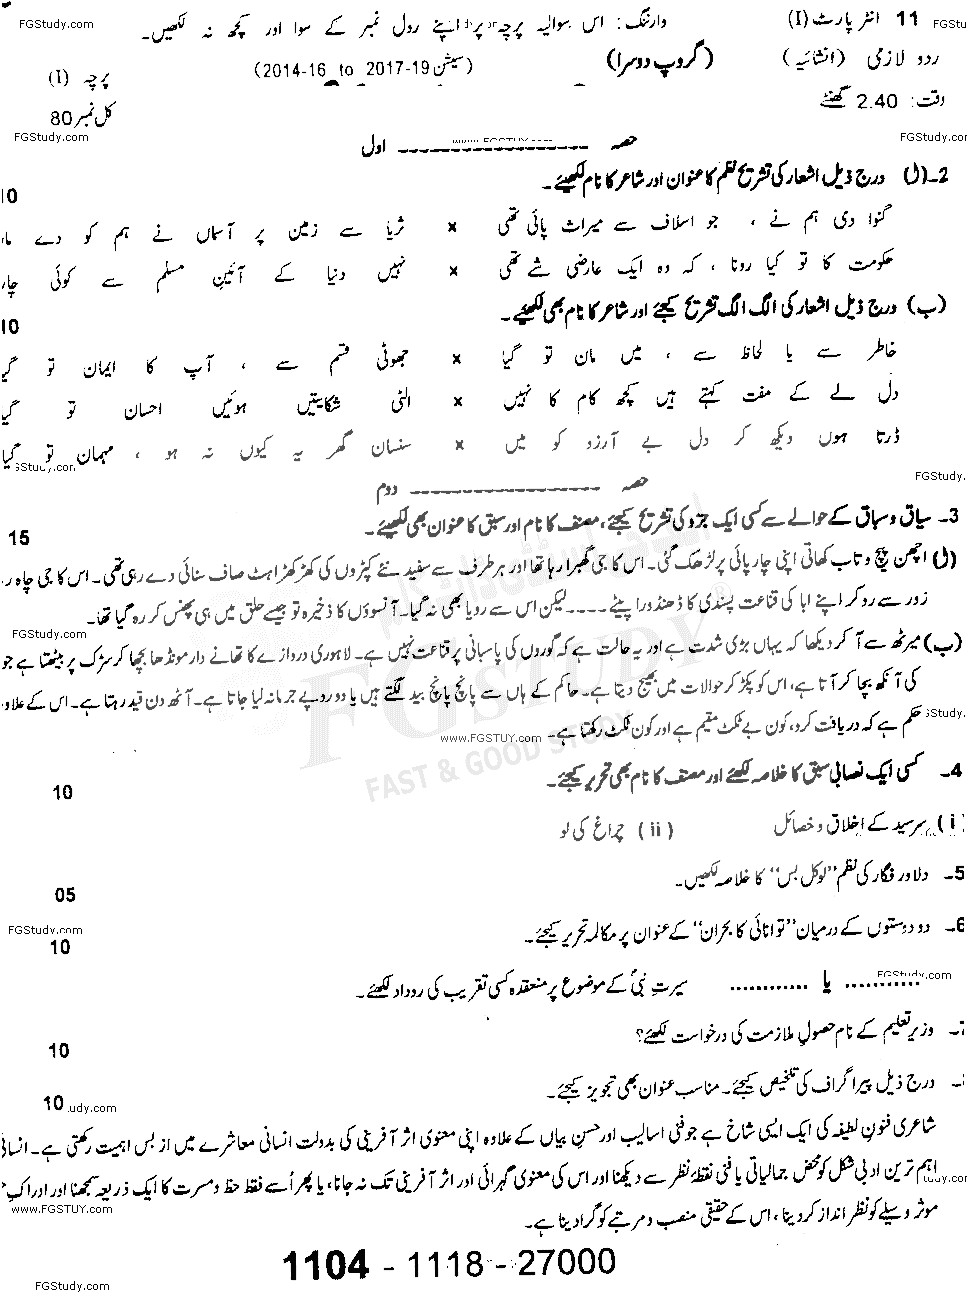 FGStudy.com
11 انٹر پارٹ (I) وارننگ: اس سوالیہ پرچہ پر اپنے رول نمبر کے سوا اور کچھ نہ لکھیں۔
FGStu
ردو لازمی (انشائیہ) (گروپ دوسرا) (سیشن 19-2017 to 16-2014) پرچہ (I)
وقت: 2.40 گھنٹے کل نمبر 80
FGStudy.com FGStudy.com
حصہ ـــــــــ اول
2۔(ل) درج ذیل اشعار کی تشریح نظم کا عنوان اور شاعر کا نام لکھیئے۔
10
گنوا دی ہم نے ، جو اسلاف سے میراث پائی تھی × ثریا سے زمین پر آسماں نے ہم کو دے ما
حکومت کا تو کیا رونا ، کہ وہ ایک عارضی شے تھی × نہیں دنیا کے آئینِ مسلم سے کوئی چار
(ب) درج ذیل اشعار کی الگ الگ تشریح کیجئے اور شاعر کا نام بھی لکھیئے۔
10
خاطر سے یا لحاظ سے ، میں مان تو گیا × جھوٹی قسم سے ، آپ کا ایمان تو گی
دل لے کے مفت کہتے ہیں کچھ کام کا نہیں × الٹی شکایتیں ہوئیں احسان تو گی
ڈرتا ہوں دیکھ کر دل بے آرزو کو میں × سنسان گھر یہ کیوں نہ ہو ، مہمان تو گیا
GStudy.com FGStudy.
حصہ ـــــــــ دوم
3۔ سیاق و سباق کے حوالے سے کسی ایک جزو کی تشریح کیجئے، مصنف کا نام اور سبق کا عنوان بھی لکھیئے۔
15
(ل) اچھن پیچ و تاب کھاتی اپنی چارپائی پر لڑھک گئی۔ اس کا جی گھبرا رہا تھا اور ہر طرف سے سفید نئے کپڑوں کی کھڑکھڑاہٹ صاف سنائی دے رہی تھی۔ اس کا جی چاہ ر
زور سے رو کر اپنے ابا کی قناعت پسندی کا ڈھنڈورا پیٹے ۔۔۔۔ لیکن اس سے رویا بھی نہ گیا۔ آنسوؤں کا ذخیرہ تو جیسے حلق میں ہی پھنس کر رہ گیا تھا۔
FGStudy.com
(ب) میرٹھ سے آ کر دیکھا کہ یہاں بڑی شدت ہے اور یہ حالت ہے کہ گوروں کی پاسبانی پر قناعت نہیں ہے۔ لاہوری دروازے کا تھانے دار مونڈھا بچھا کر سڑک پر بیٹھتا ہے جو
کی آنکھ بچا کر آتا ہے، اس کو پکڑ کر حوالات میں بھیج دیتا ہے۔ حاکم کے ہاں سے پانچ پانچ بید لگتے ہیں یا دو روپے جرمانہ لیا جاتا ہے۔ آٹھ دن قید رہتا ہے۔ اس کے علاو
حکم ہے کہ دریافت کرو، کون بے ٹکٹ مقیم ہے اور کون ٹکٹ رکھتا ہے۔
GStudy.com
www.FGSTUY.com
FGSTUDY
FAST & GOOD STUDY
4۔ کسی ایک نصابی سبق کا خلاصہ لکھئے اور مصنف کا نام بھی تحریر کیجئے۔
10
(i) سرسید کے اخلاق و خصائل (ii) چراغ کی لو
5۔ دلاور فگار کی نظم "لوکل بس" کا خلاصہ لکھیں۔
05
FGStudy.com
6۔ دو دوستوں کے درمیان "توانائی کا بحران" کے عنوان پر مکالمہ تحریر کیجئے۔
10
FGStudy.com
............ یا ............ سیرتِ نبیؐ کے موضوع پر منعقدہ کسی تقریب کی روداد لکھیئے۔
7۔ وزیرِ تعلیم کے نام حصولِ ملازمت کی درخواست لکھئے؟
10
۔ درج ذیل پیراگراف کی تلخیص کیجئے۔ مناسب عنوان بھی تجویز کیجئے۔
10 udy.com
شاعری فنونِ لطیفہ کی ایک ایسی شاخ ہے جو فنی اسالیب اور حسنِ بیاں کے علاوہ اپنی معنوی اثر آفرینی کی بدولت انسانی معاشرے میں از بس اہمیت رکھتی ہے۔ انسانی
اہم ترین ادبی شکل کو محض جمالیاتی یا فنی نقطۂ نظر سے دیکھنا اور اس کی معنوی گہرائی اور اثر آفرینی تک نہ جانا، یا پھر اُسے فقط حظ و مسرت کا ایک ذریعہ سمجھنا اور ادراک
tudy.com
www.FGSTUY.com
موثر وسیلے کو نظر انداز کر دینا، اس کے حقیقی منصب و مرتبے کو گرا دینا ہے۔
1104 - 1118 - 27000
FGStudy.com